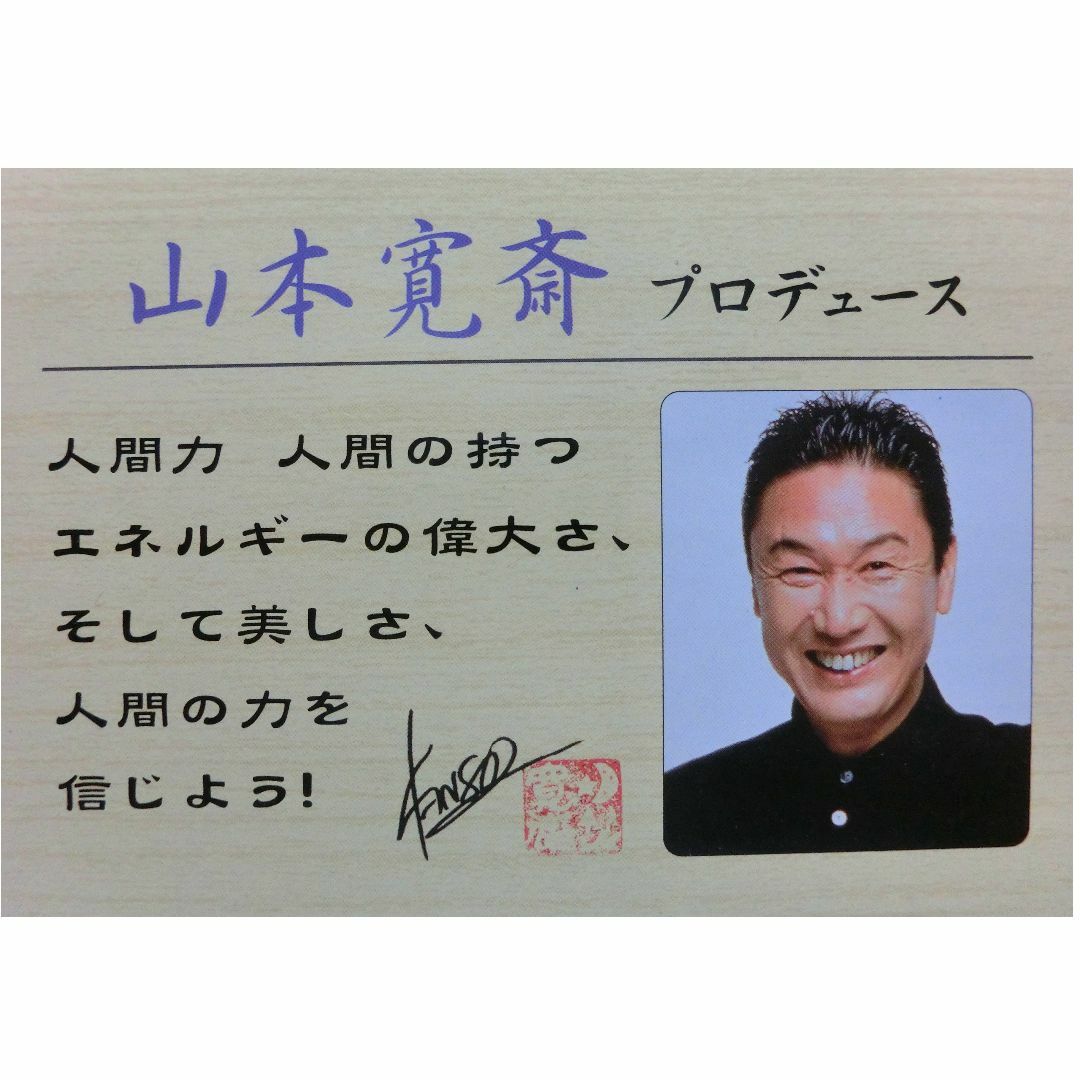 山本寛斎 プロデュース
人間力 人間の持つ
エネルギーの偉大さ、
そして美しさ、
人間の力を
信じよう!
Kansai